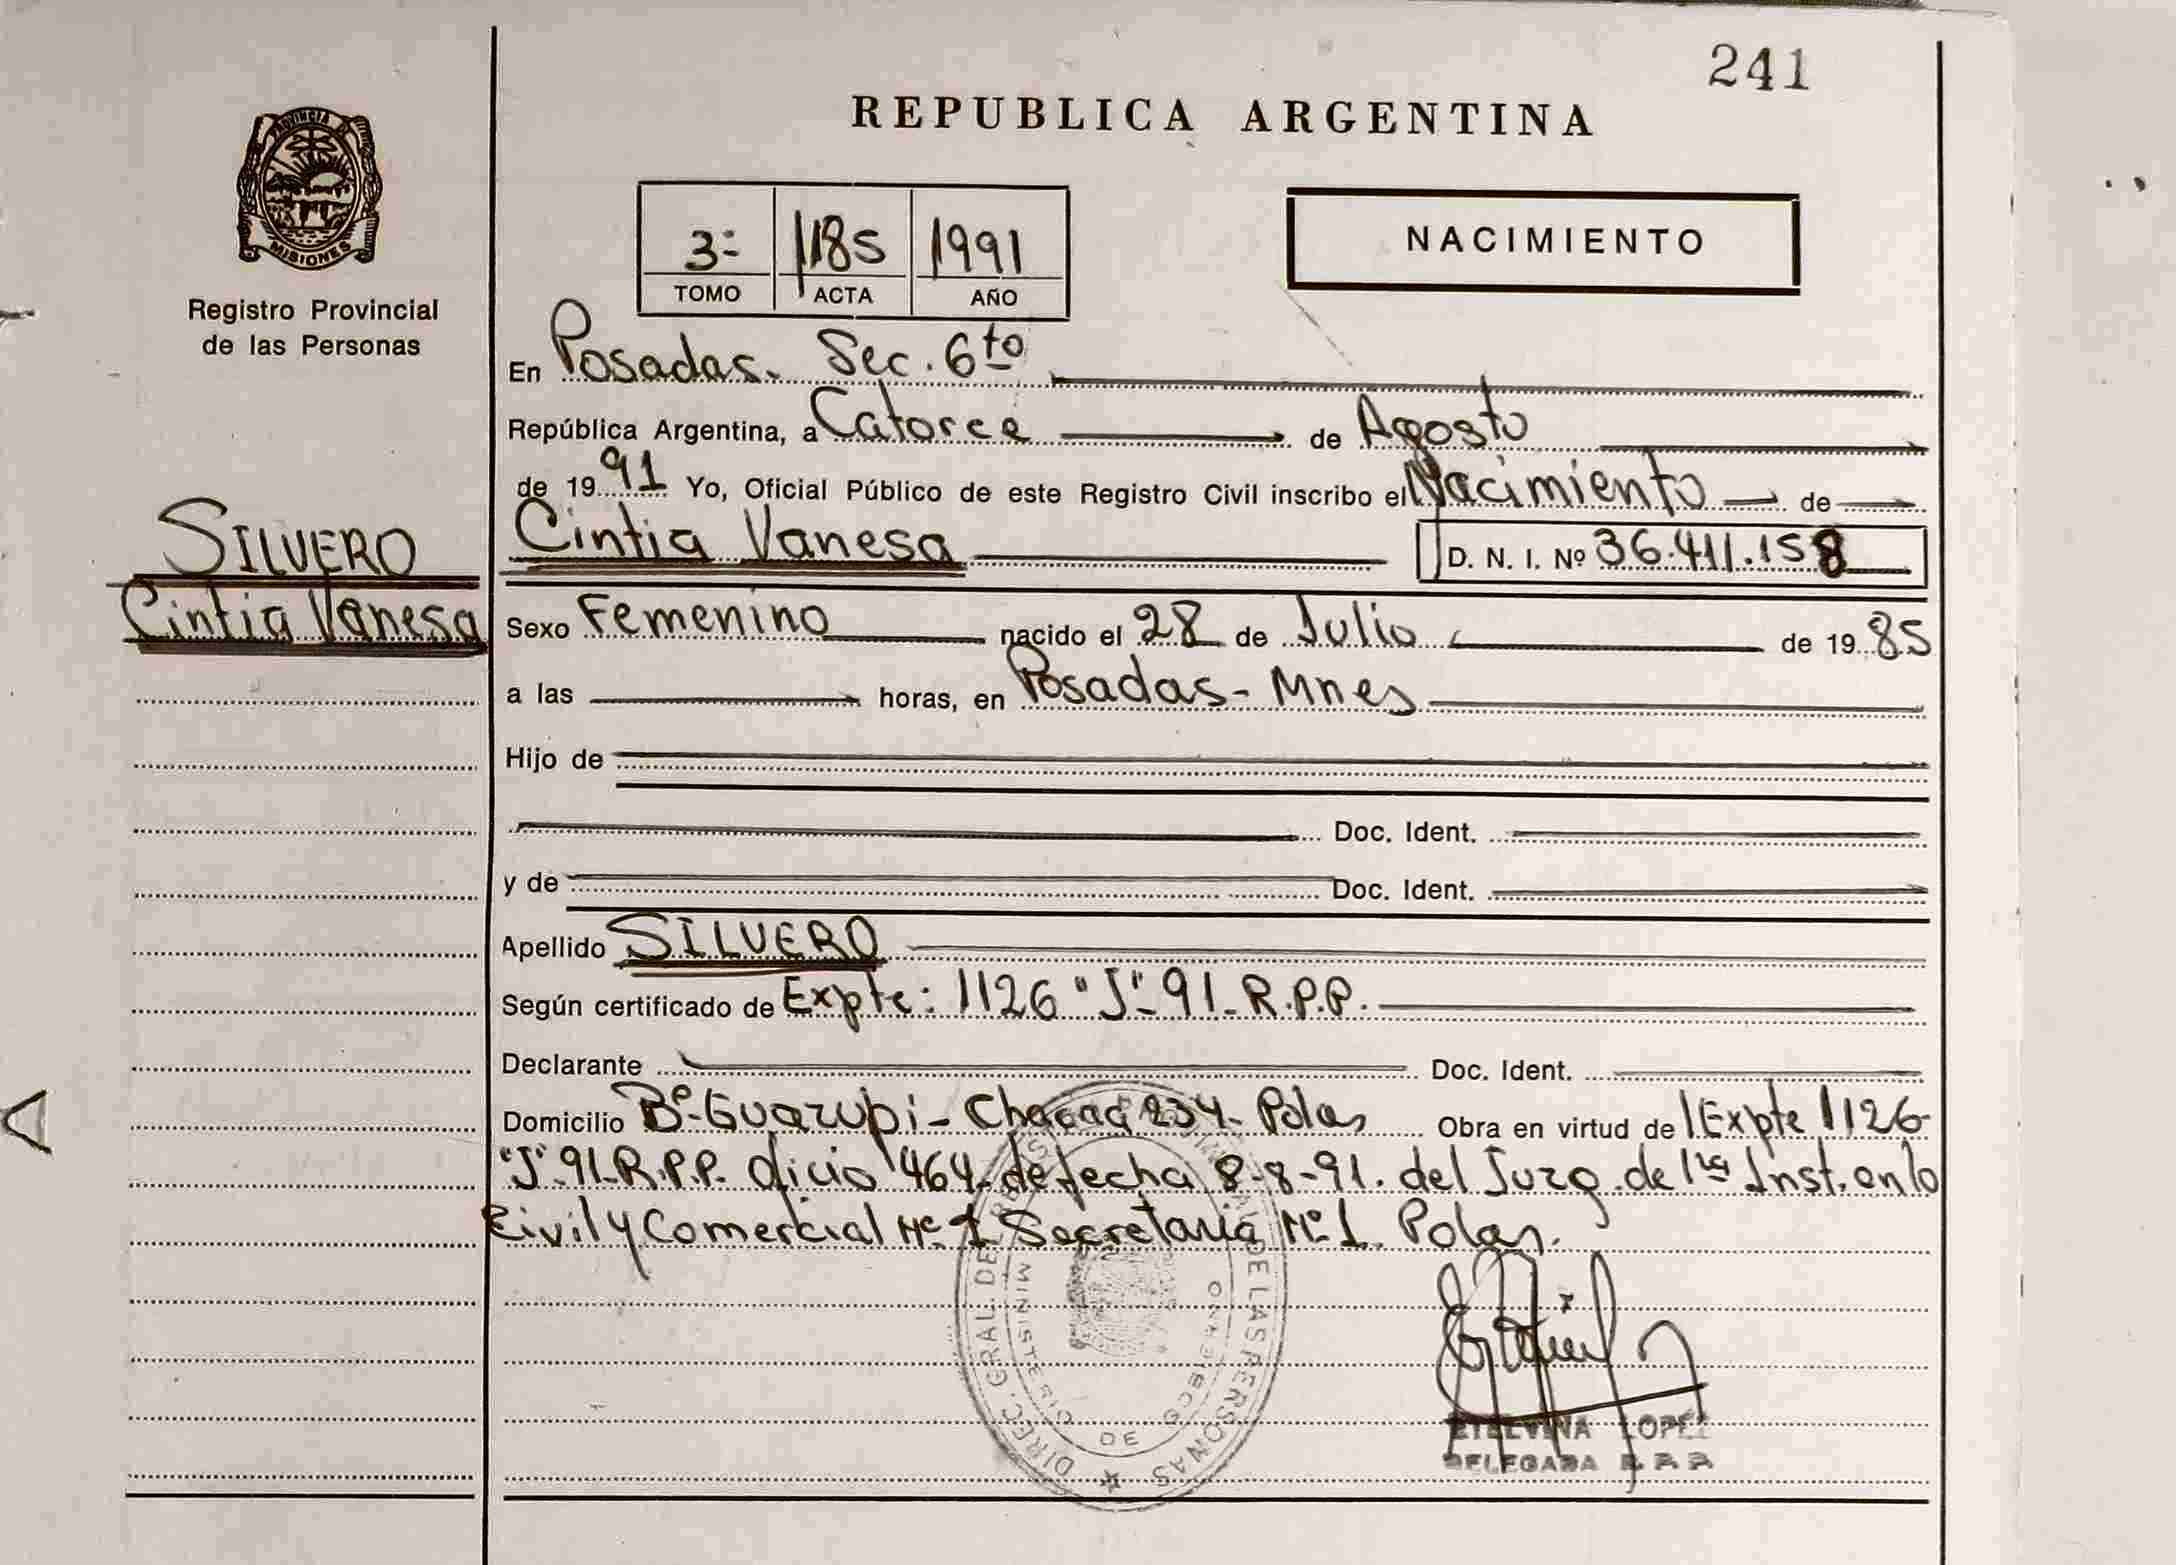 241
REPUBLICA ARGENTINA
PROVINCIA
MISIONES
Registro Provincial
de las Personas
3- 1185 1991
TOMO ACTA AÑO
NACIMIENTO
En Posadas. Sec. 6to
República Argentina, a Catorce de Agosto
de 1991 Yo, Oficial Público de este Registro Civil inscribo el Nacimiento de
SILVERO
Cintia Vanesa
Cintia Vanesa D. N. I. Nº 36.411.158
Sexo Femenino nacido el 28 de Julio de 1985
a las horas, en Posadas - Mnes
Hijo de
Doc. Ident.
y de Doc. Ident.
Apellido SILVERO
Según certificado de Expte: 1126 "J"- 91- R.P.P.
Declarante Doc. Ident.
Domicilio Bº- Guazupi - Chacra 234- Pdas Obra en virtud de Expte 1126-
"J" 91- R.P.P. Oficio 464- de fecha 8-8-91. del Juzg. de 1ra Inst. en lo
Civil y Comercial Nº 1 Secretaria Nº 1 Pdas.
DIREC. GRAL. DE DE LAS PERSONAS
MINISTERIO DE GOBIERNO
ETELVINA LOPEZ
DELEGADA R.P.P.